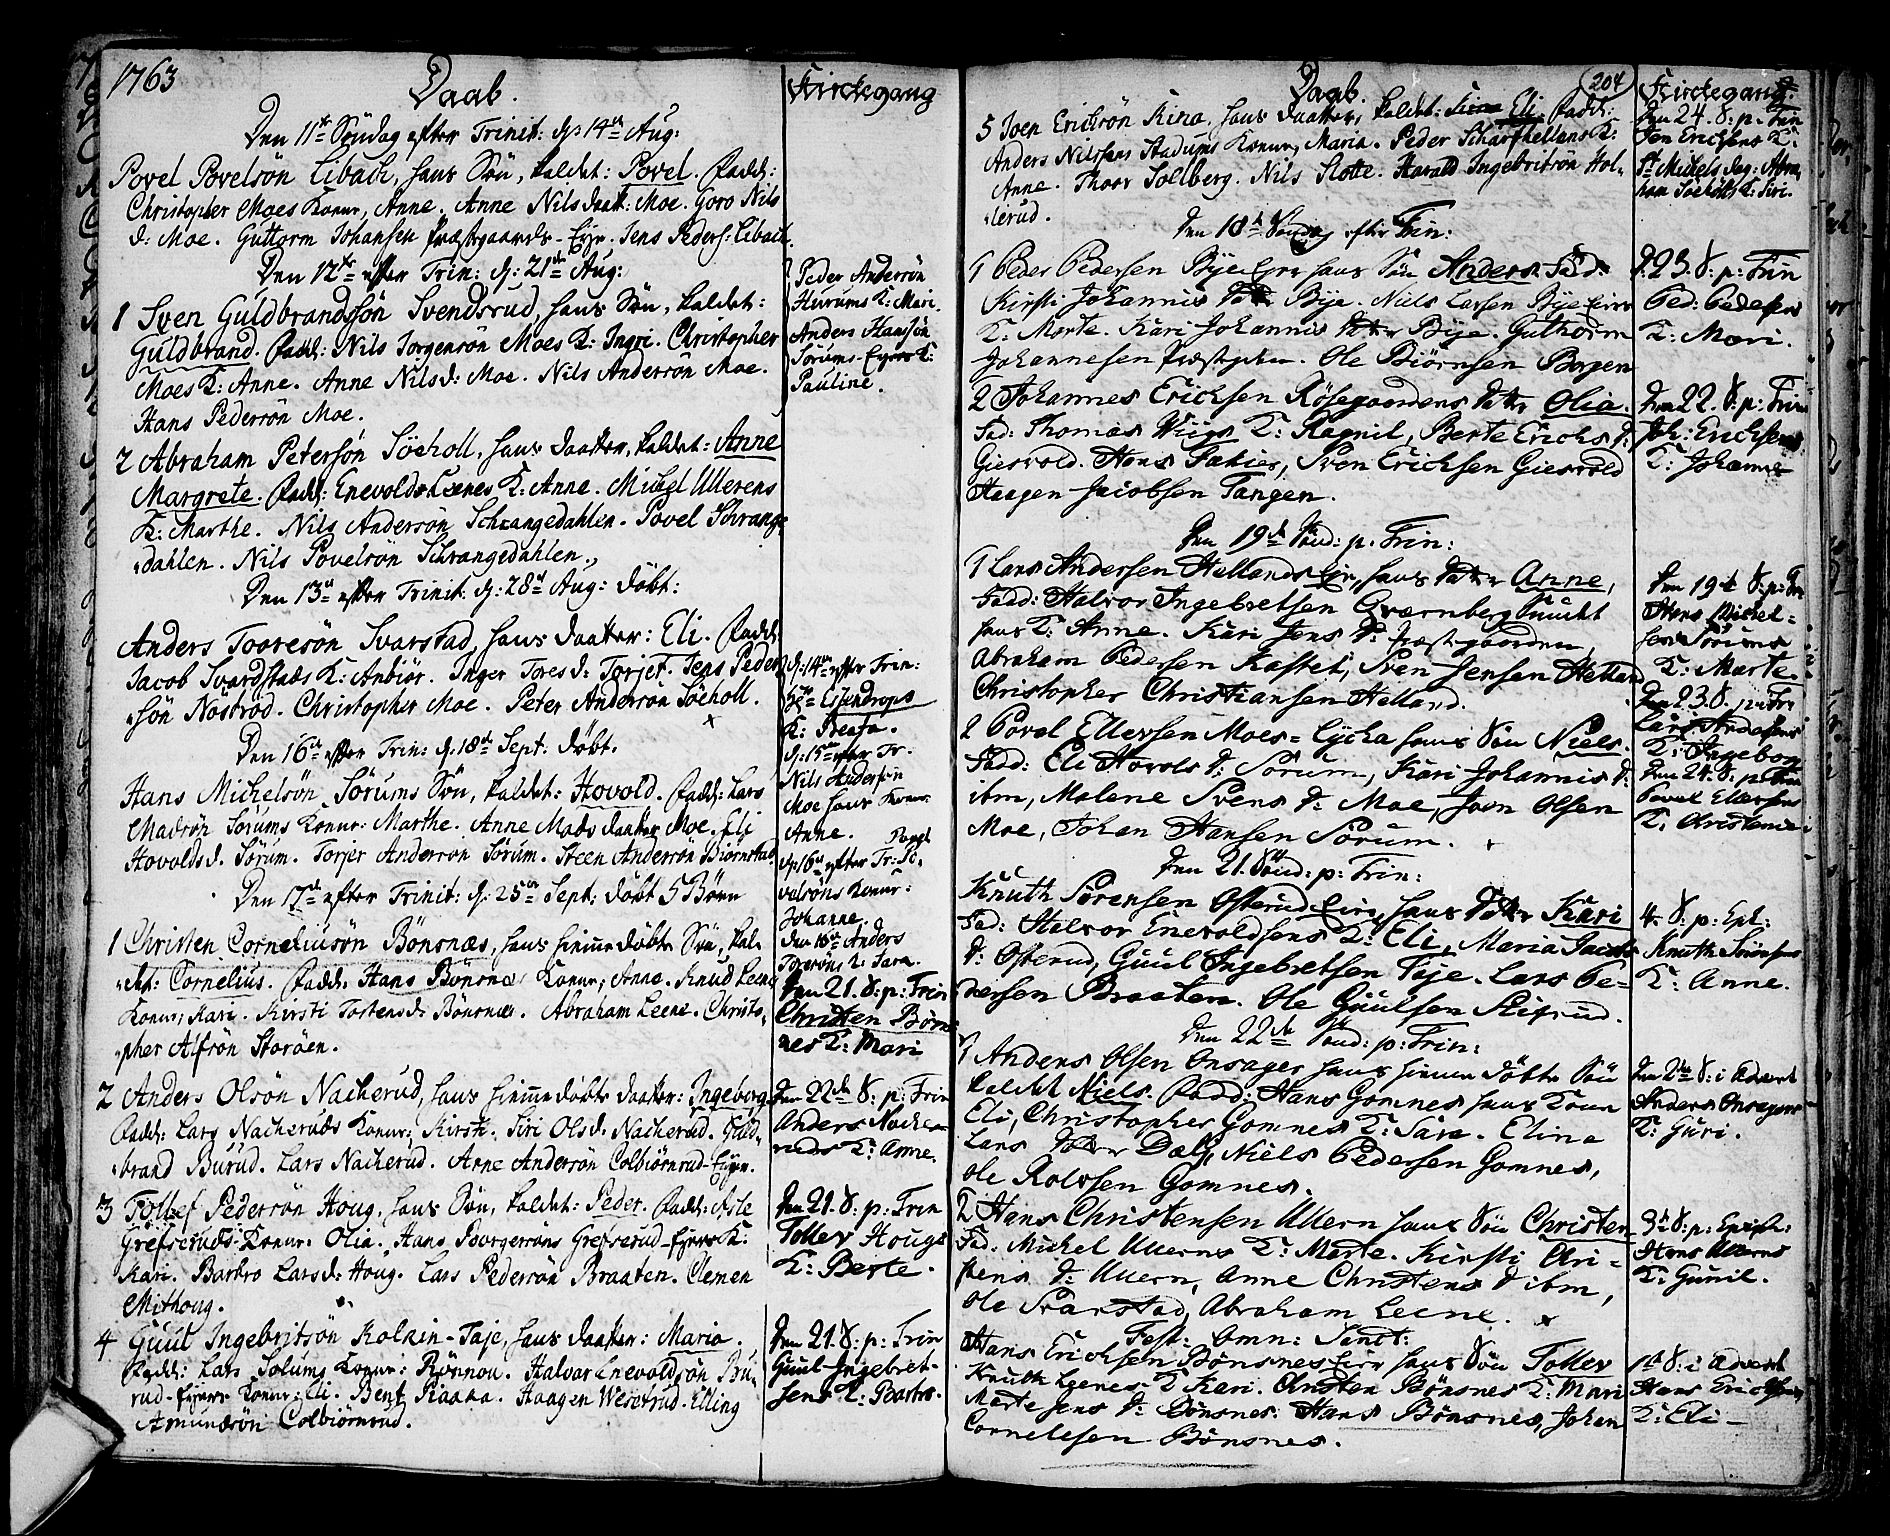 1763
Daab.
Den 11te Söndag efter Trinit: d: 14de Aug:
Povel Povelsön Libach, hans Sön, kaldet: Povel. Fadd:
Christopher Moes Konur, Anne. Anne Nils daatt: Moe. Goro Nils
d: Moe. Guttorm Johansen Præstgaards-Ejer. Jens Peders: Libach.
Den 12te efter Trin: d: 21de Aug:
1 Sven Guldbrandssön Svendsrud, hans Sön, kaldet:
Guldbrand. Fadd: Nils Jorgensön Moes K: Ingri. Christopher
Moes K: Anne. Anne Nilsd: Moe. Nils Andersön Moe.
Hans Pedersön Moe.
2 Abraham Petersön Söeholl, hans daatter, kaldet: Anne
Margrete. Fadd: Enevolds Leenes K: Anne. Michel Ullerens
K: Marthe. Nils Andersön Schrangedahlen. Povel Schrange
dahlen. Nils Povelsön Schrangedahlen.
Den 13de efter Trinit: d: 28de Aug: döbt:
Anders Tooresön Svarstad, hans daatter: Eli. Fadd:
Jacob Svardstads K: Anbiör. Inger Tores d: Torjet. Jens Peder
sön Nostrod. Christopher Moe. Peter Andersön Söeholl.
Den 16de efter Trin: d: 18de Sept: döbt.
Hans Michelsön Sörums Sön, kaldet: Hovold. Fadd: Lars
Madsön Sörums Konur: Marthe. Anne Mads daatter Moe. Eli
Hovolds d. Sörum. Torjer Anderson Sörum. Steen Andersön Biörnstad.
Den 17de efter Trinit: d: 25de Sept: döbt 5 Börn
1 Christen Corneliusön Bönsnæs, hans hiemme döbte Sön, kal-
det: Cornelius. Fadd: Hans Bönsnæs Konur, Anne. Knud Leene
Konur, Kari. Kirsti Torstens d: Bönsnæs. Abraham Leene. Christo-
pher Alfsön Storöen.
2 Anders Olsön Nacherud, hans hiemme döbte daatter: Ingeborg.
Fadd: Lars Nacheruds Konur; Kirsti. Siri Olsd. Nacherud. Guld-
brand Burud. Lars Nacherud. Anne Andersön Colbiörnrud-Ejer.
3 Tollef Pedersön Houg, hans Sön, kaldet: Peder. Fadd: Asle
Grefseruds Konur: Olia. Hans Borgersöns Grefserud-Ejers K:
Kari. Barbro Larsd: Houg. Lars Pedersön Braaten. Clemen
Mithoug.
4 Guul Ingebritsön Kolkin-Taje, hans daatter: Maria.
Fadd: Lars Solums Konur: Rönnou. Halvor Enevoldsön Bu-
rud-Ejers Konur: Eli. Bent Raana. Haagen Wesetrud. Elling
Amundsön Colbiörnrud.
Kirckegang
Peder Andersön
Hurums K: Mari.
Anders Hansön
Sörums-Ejers K:
Pauline.
d: 14de efter Trin:
Hr Essendrops
K: Beata.
d: 15de efter Tr.
Nils Andersön
Moe hans Konur
Anne.
d: 16de efter Tr: Po-
velsöns Konur:
Johanne.
den 18de Anders
Toresöns K: Sara.
Den 21. S: p: Trin
Christen Böns-
nes K: Mari
Den 22de S: p: Trin
Anders Nache-
ruds K: Anne.
Den 21. S: p: Trin
Tollev Hougs
K: Berte.
Den 21. S: p: Trin
Guul Ingebret-
sens K: Barbr.
Daab.
204
5 Joen Ericksön Kina, hans daatter, kaldet: Eli. Fadd:
Anders Nilssens Stadums Konur, Maria. Peder Scharfhellans K:
Anne. Thoor Sollberg. Nils Slotte. Harald Ingebritsön Hol-
lerud.
Den 18de Söndag efter Trin:
1 Peder Pedersen Bye-Eier hans Sön Anders. Fad:
Kirsti Johannis Dattr Bye. Niels Larsen Bye-Eiers
K: Morte. Kari Johannis Datter Bye. Guthorm
Johannesen Præstgrden. Ole Biörnsen Borgen
2 Johannes Erichsen Rösegaardens Datter Olia.
Fad: Thomas Wiigs K: Ragnil, Berte Erichs d:
Giesvold. Hans Fakier, Sven Erichsen Giesvold
Haagen Jacobsen Tangen.
Den 19de Sönd: p: Trin:
1 Lars Andersen Hellands Eier, hans Datter Anne,
Fadd: Halvor Ingebretsen Qværnberg Smidt
hans K: Anne. Kari Jens d: Præstgaarden,
Abraham Pedersen Kastet, Sven Jensen Helland
Christopher Christiansen Helland.
2 Povel Ellersen Moes-Eycka hans Sön Niels.
Fadd: Eli Hovols d: Sörum, Kari Johannis d:
ibm, Malene Svens d: Moe, Joen Olsen
Moe, Johan Hansen Sörum.
Den 21. Sönd: p: Trin:
Knuth Sörensen Osterud-Eier, hans Datter Kari
Fad: Halvor Enevoldsens K: Eli, Maria Jacobs
d: Osterud, Guul Ingebretsen Teje. Lars Pe-
dersen Braaten. Ole Guulsen Stifrud.
Den 22de Sönd: p: Trin:
1 Anders Olsen Onsager hans hiemme Döbte Sön
kaldet Niels. Fadd: Hans Gomnes hans Konu
Eli, Christopher Gomnes K: Sara. Eline
Lars Datter Dæly, Niels Pedersen Gomnes,
Ole Rolvsen Gomnes.
2 Hans Christensen Ullern hans Sön Christen.
Fad: Michel Ullerns K: Marte. Kirsti Chri-
stens d: Ullern, Anne Christens d ibm,
Ole Svarstad, Abraham Leene.
Fest: Omn: Sanct:
Hans Erichsen Bönsnes Eier hans Sön Tollev
Knuth Leenes K Kari. Christen Bönsnes K: Mari
Marte Jens d: Bönsnes. Hans Bönsnes, Johan
Cornelesen Bönsnes.
Kirckegang
Den 24. S: p. Trin
Joen Erichsens K:
St Michels dag: Abra-
ham Söeholts K: Siri.
d. 23. S: p: Trin
Ped: Pedersens
K: Mari.
Den 22. S: p: Trin
Joh: Erichsens
K: Johanne
Den 19de S: p: Tr
Hans Michel-
sens Sörums
K: Marte.
Den 23 S. p: Tri
Lars Andersens
K: Ingeborg
Den 24. S: p Trin
Povel Ellersens
K: Christence
4. S: p. Eph:
Knuth Sörensens
K: Anne.
Den 2den S: i Advent
Anders Onsagers
K: Guri.
3de S: p: Epiph:
Hans Ullerns
K: Gunil.
1st S: i Advent
Hans Erichsens
K: Eli